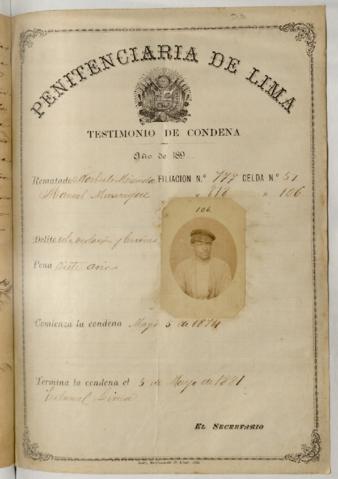 PENITENCIARIA DE LIMA
TESTIMONIO DE CONDENA
Año de 189
Rematado Norberto Miranda FILIACION N.º 777 CELDA N.º 51
Manuel " 818 " 106
106
Delito
Pena siete años
Comienza la condena Mayo 5 de 1874
Termina la condena el 5 de Mayo de 1881
Tribunal Lima
EL SECRETARIO